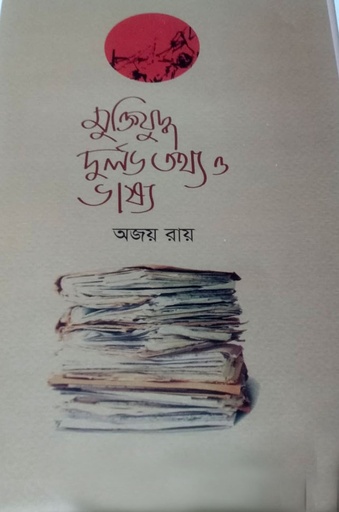 মুক্তিযুদ্ধ
দুর্লভ তথ্য ও
ভাষ্য
অজয় রায়